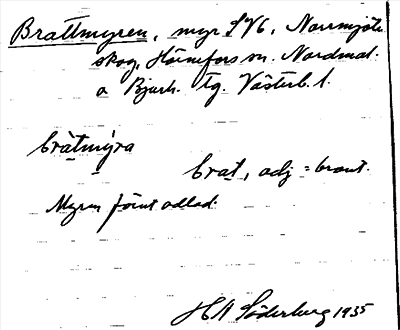 Brattmyren, myr S V6, Norrmjöle
skog, Hörnefors sn. Nordmal.
o Bjurh. tg. Västerb. l.
bràtmýra
brat, adj = brant.
Myren förut odlad.
H A Söderberg 1935